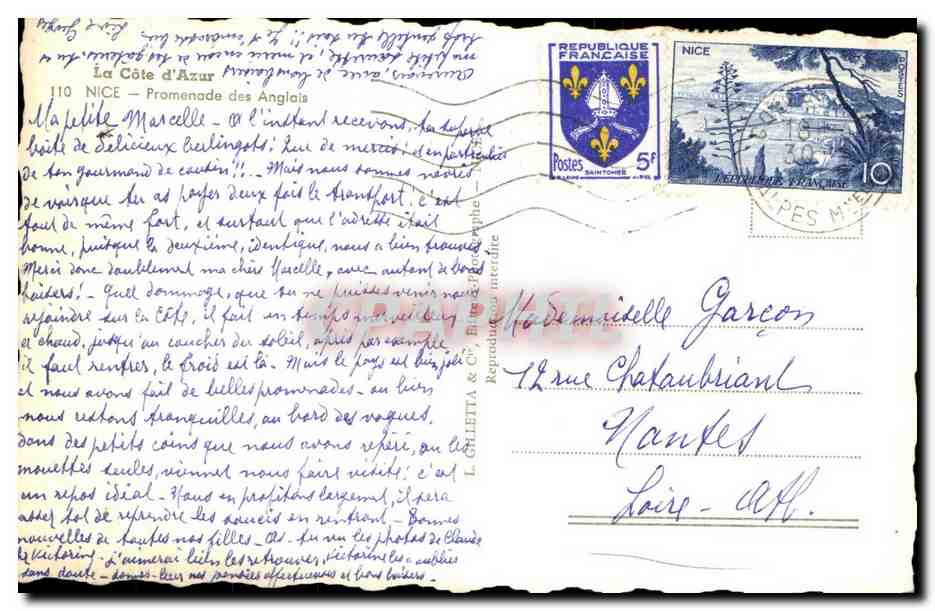 La Côte d'Azur
110 NICE — Promenade des Anglais
Ma petite Marcelle - A l'instant recevons, ta superbe
boîte de délicieux berlingots! Que de mercis! et en particulier
de ton gourmand de cousin!! - Mais nous sommes navrés
de voir que tu as payer deux fois le transport, c'est
tout de même fort, et surtout que l'adresse était
bonne, puisque la deuxième, identique, nous a bien trouvés
Merci donc doublement ma chère Marcelle, avec autant de bons
baisers! - Quel dommage, que tu ne puisses venir nous
rejoindre sur la Côte, il fait un temps merveilleux
et chaud, jusqu'au coucher du soleil, après par exemple
il faut rentrer, le froid est là. Mais le pays est bien joli
et nous avons fait de belles promenades - ou bien
nous restons tranquilles, au bord des vagues,
dans des petits coins que nous avons repéré, ou les
mouettes seules, viennent nous faire visite! c'est
un repos idéal - Nous en profitons largement, il sera
assez tôt de reprendre les soucis en rentrant - Bonnes
nouvelles de toutes nos filles - As-tu vu les photos de Claude
et Victorine - J'aimerai bien les retrouver, Victorine les a oubliés
sans doute - donnes-leur nos pensées affectueuses et bons baisers -
ma petite
L. GILLETTA & Cie, Photographe — NICE
Reproduction interdite
REPUBLIQUE
FRANÇAISE
Postes
SAINTONGE
5F
NICE
POSTES
REPUBLIQUE FRANÇAISE
10
18
30
ALPES Mmes
CPAPHIL
Mademoiselle Garçon
12 rue Chataubriant
Nantes
Loire - Atl.